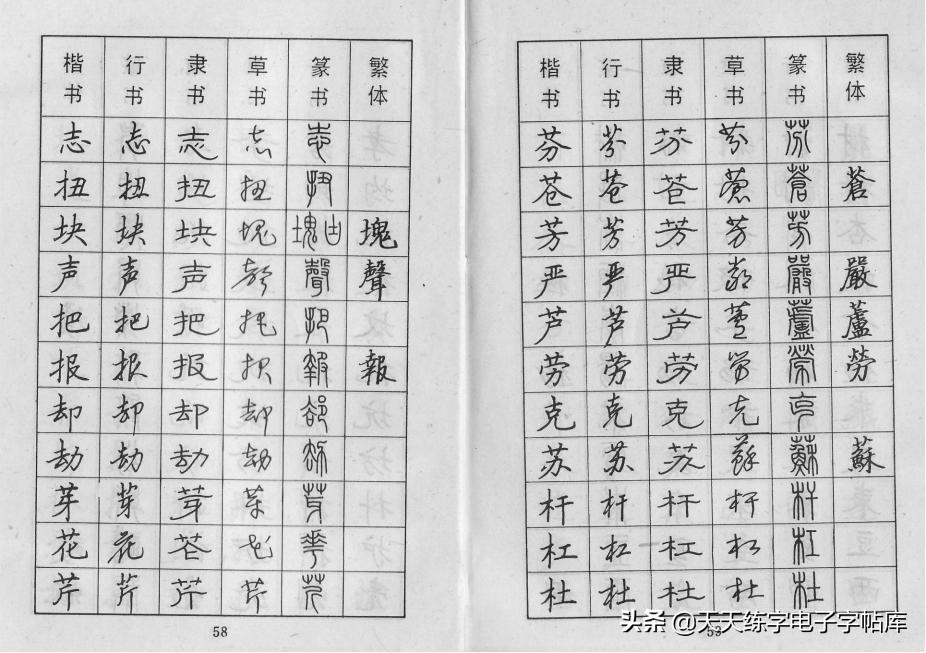 楷书 行书 隶书 草书 篆书 繁体
志 志 志 志 志
扭 扭 扭 扭 扭
块 块 块 塊 塊凷 塊
声 声 声 声 聲 聲
把 把 把 把 把
报 报 报 报 報 報
却 却 却 却 卻
劫 劫 劫 劫 劫
芽 芽 芽 芽 芽
花 花 花 花 花
芹 芹 芹 芹 芹
58
楷书 行书 隶书 草书 篆书 繁体
芬 芬 芬 芬 芬
苍 苍 苍 蒼 蒼 蒼
芳 芳 芳 芳 芳
严 严 严 嚴 嚴 嚴
芦 芦 芦 蘆 蘆 蘆
劳 劳 劳 劳 勞 勞
克 克 克 克 克
苏 苏 苏 蘇 蘇 蘇
杆 杆 杆 杆 杆
杠 杠 杠 杠 杠
杜 杜 杜 杜 杜
59
头条 @天天练字电子字帖库